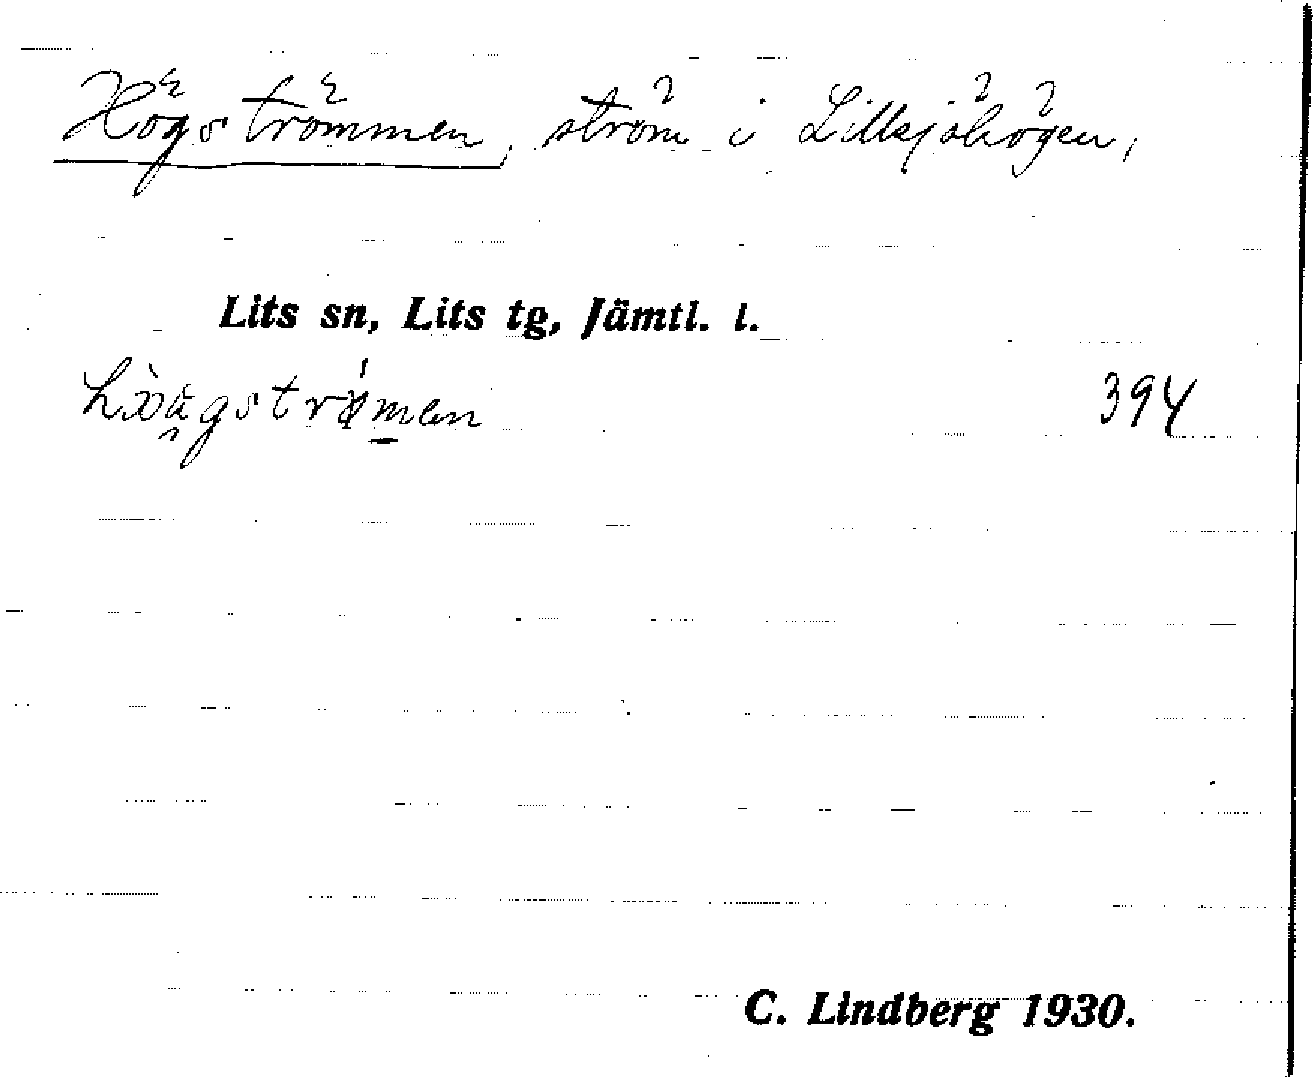 Högströmmen, ström i Lillsjöhögen,
Lits sn, Lits tg, Jämtl. l.
394
C. Lindberg 1930.